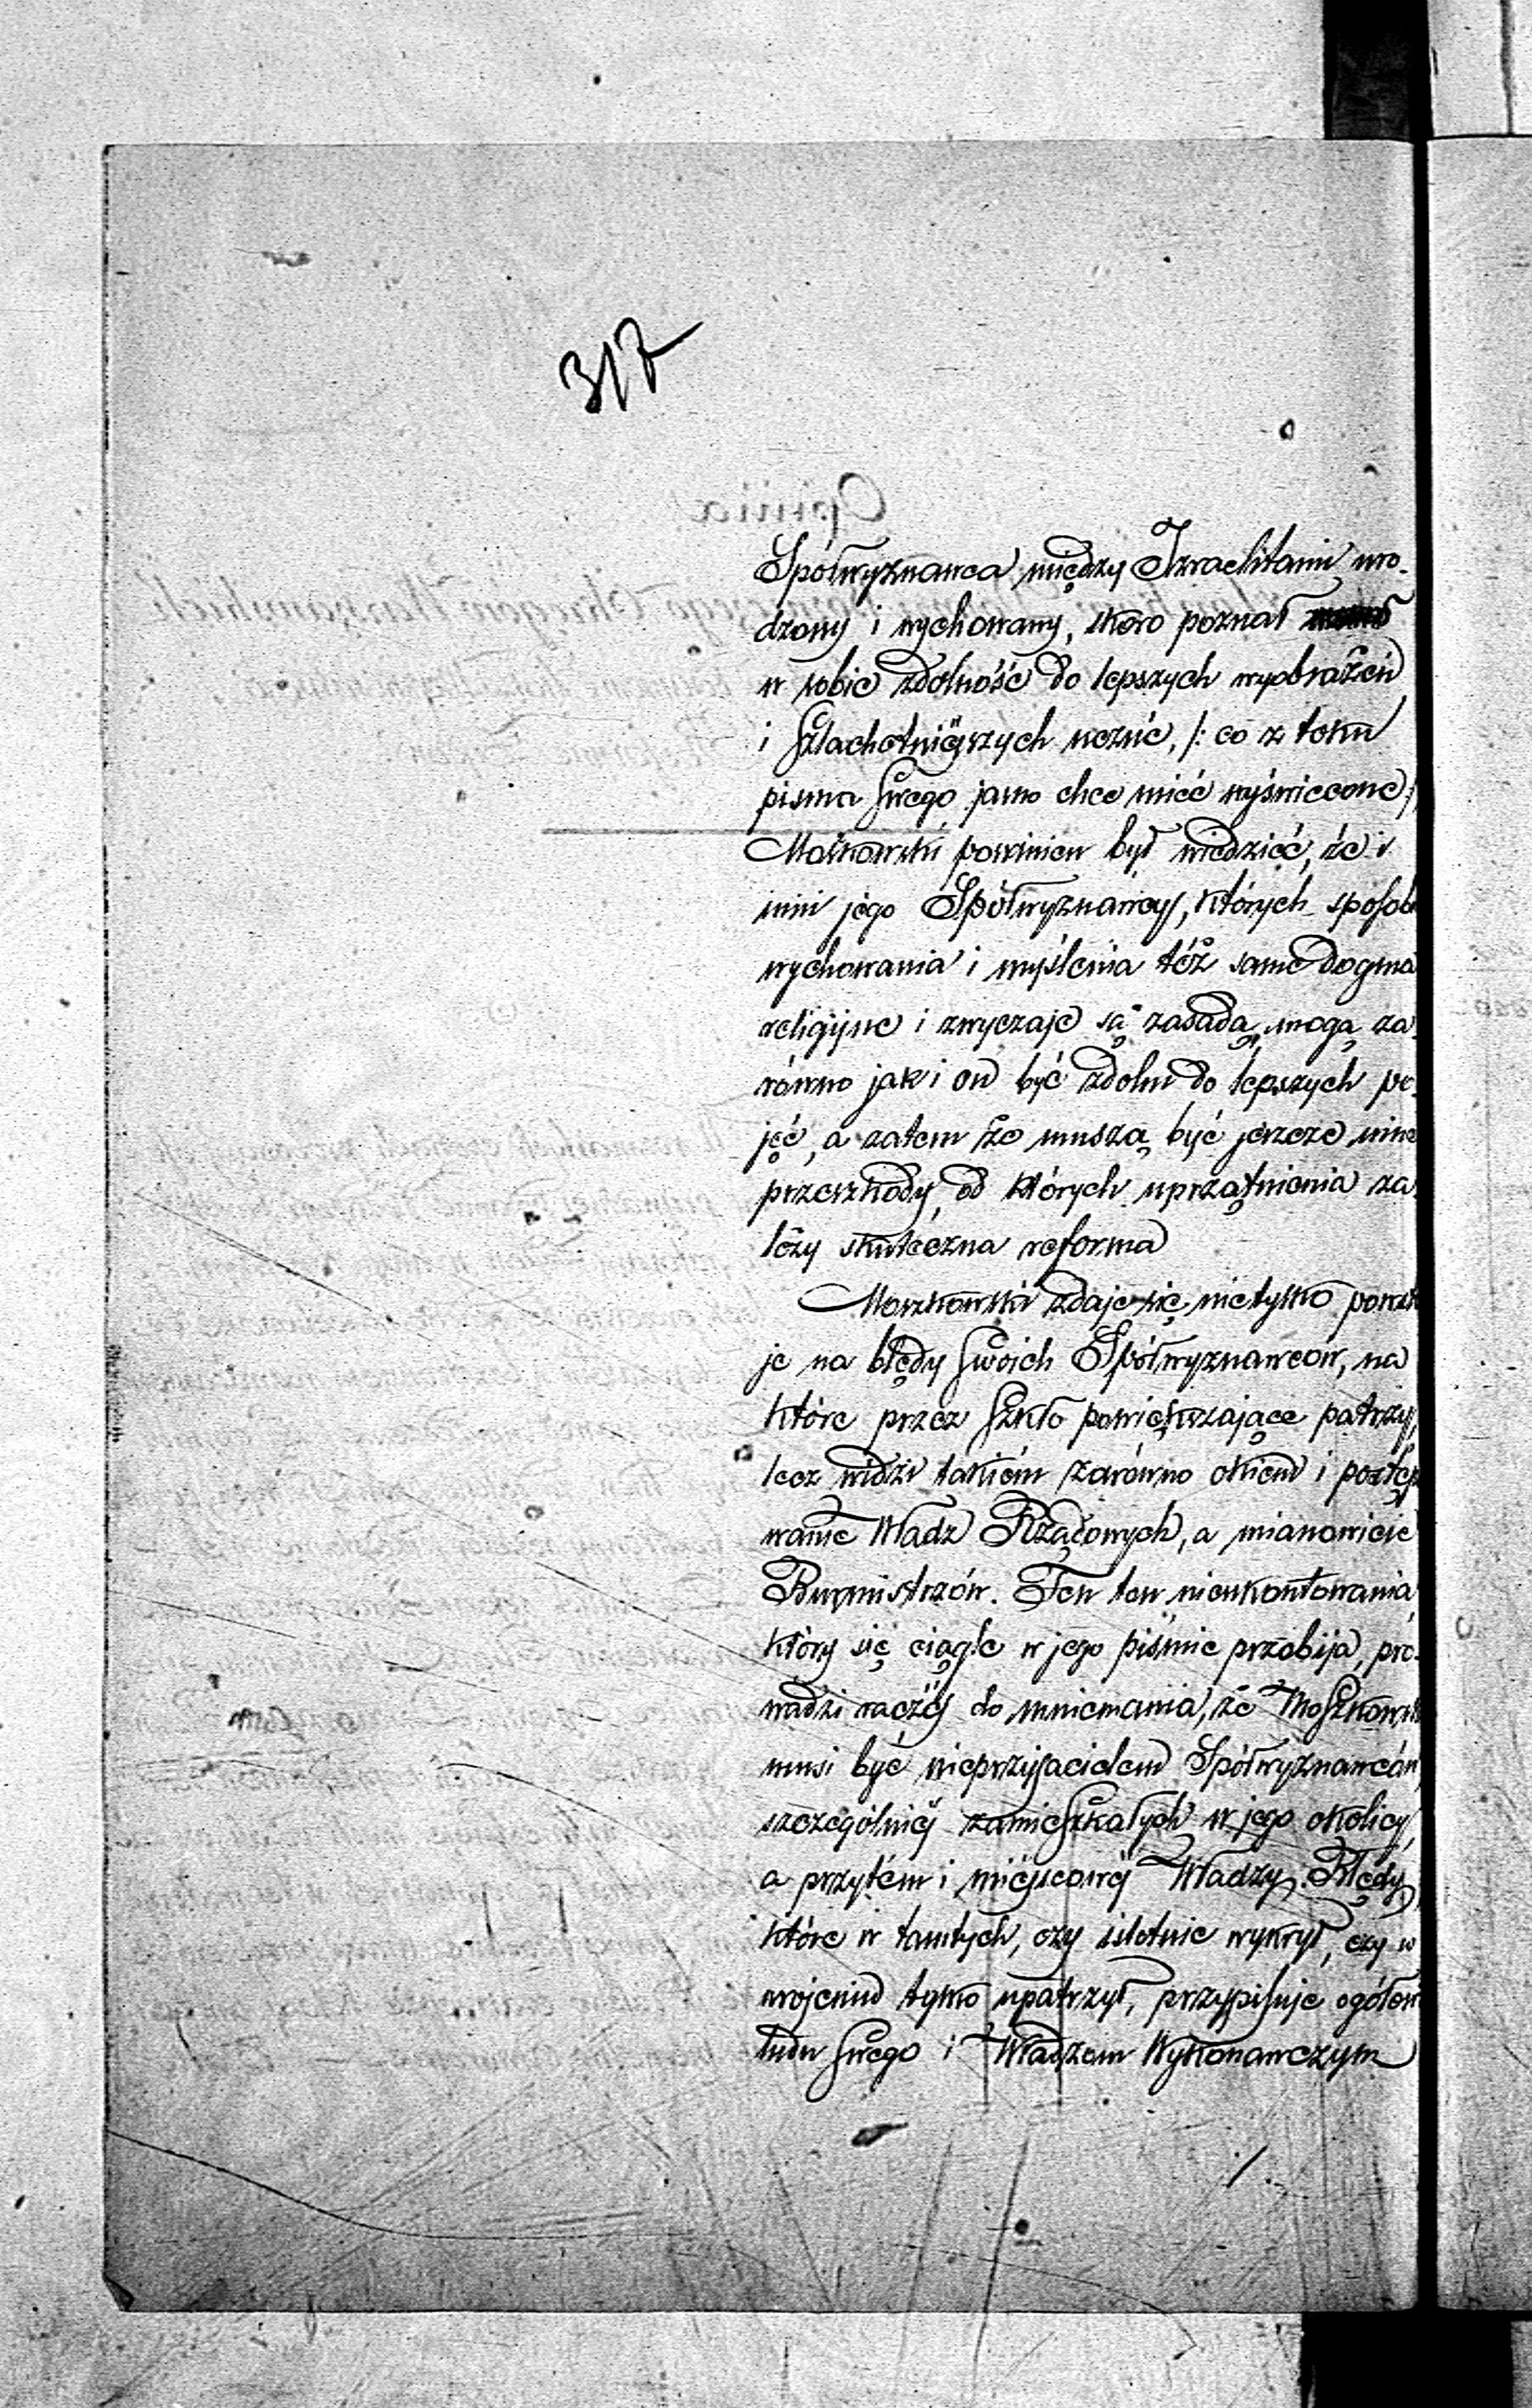 317
Spółwyznawca między Izraelitami uro-
dzony i wychowany, skoro poznał
w sobie zdolność do lepszych wyobrażeń
i szlachetniejszych uczuć, /: co z toku
pisma swego jasno chce mieć wyświecone
Moszkowski powinien był wiedzieć, że i
inni jego Spółwyznawcy, których sposob
wychowania i myślenia też same dogma
religijne i zwyczaje są zasadą, mogą za
równo jak i on być zdolni do lepszych po-
jęć, a zatem że muszą być jeszcze inne
przeszkody, od których uprzątnienia za
leży skuteczna reforma
Moszkowski zdaje się nietylko powsta
je na błędy swoich Spółwyznawców, na
które przez szkło powiększające patrzy,
lecz widzi takiém zarówno okiem i postęp
wanie Władz Rządowych, a mianowicie
Burmistrzów. Ten ton nieukontowania
który się ciągle w jego piśmie przebija, pro-
wadzi raczéj do mniemania, że Moszkows
musi być nieprzyjacielem Spółwyznawców
szczególniéj zamieszkałych w jego okolicy,
a przytém i miéjscowéj Władzy. Błędy
które w tamtych, czy istotnie wykrył, czy w
urojeniu tylko upatrzył, przypisuje ogółow
ludu swego i Władzom Wykonawczym